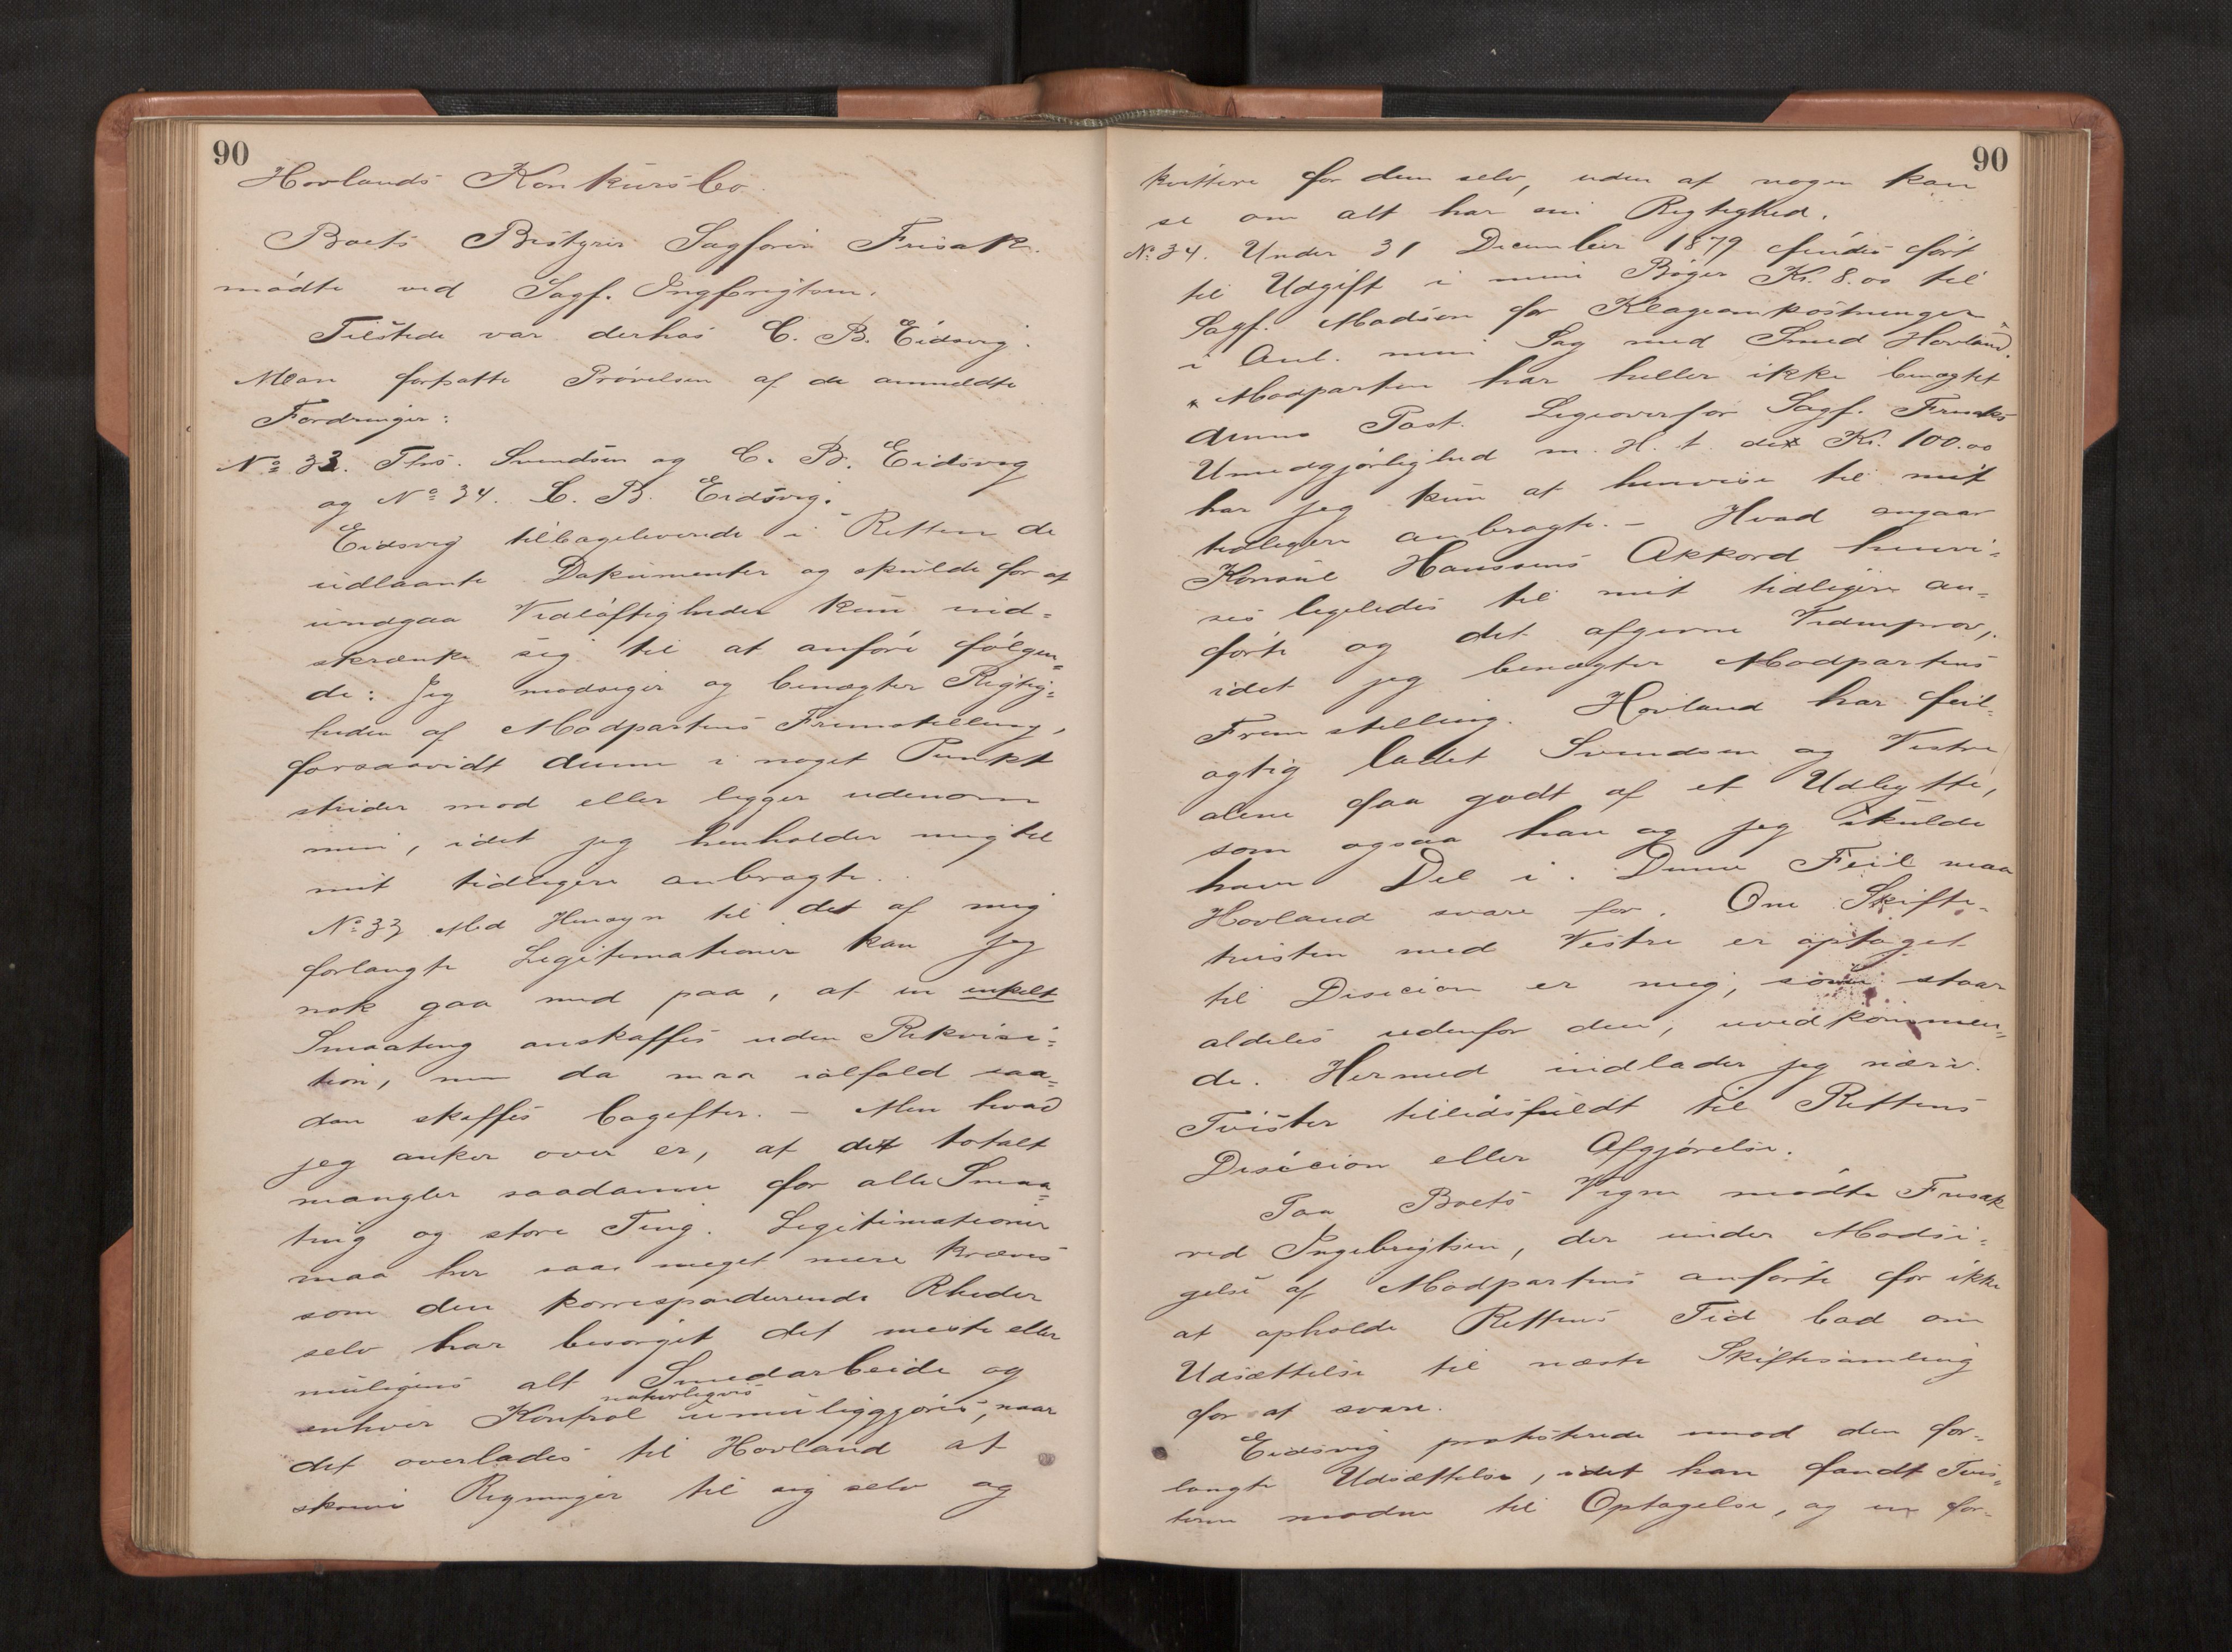 90
Hovlands Konkursbo.
Boets Bestyrer Sagfører Frisak
mødte ved Sagf. Ingebrigtsen.
Tilstede var derhos C. B. Eidsvig.
Man fortsatte Prøvelsen af de anmeldte
Fordringer:
No 33. Ths. Svendsen og C. B. Eidsvig
og No 34. C. B. Eidsvig.
Eidsvig tilbageleverede i Retten de
udlaante Dokumenter og skulde for at
undgaa Vidløftigheder kun ind=
skrænke sig til at anføre følgen=
de: Jeg modsiger og benægter Rigtig=
heden af Modpartens Fremstilling,
forsaavidt denne i noget Punkt
strider mod eller ligger udenom
min, idet jeg henholder mig til
mit tidligere anbragte.
No 33 Med Hensyn til det af mig
forlangte Legitimationer kan jeg
nok gaa med paa, at en enkelt
Smaating anskaffes uden Rekvisi=
tion, men da maa ialfald saa=
dan skaffes bagefter. – Men hvad
jeg anker over er, at det totalt
mangler saadanne for alle Smaa=
ting og store Ting. Legitimationer
maa her saa meget mere kræves
som den korresponderende Rheder
selv har besørget det meste eller
muligens alt Smedarbeide og
enhver Kontrol naturligvis umuliggjøres, naar
det overlades til Hovland at
skrive Regninger til sig selv og
90
kvittere for dem selv, uden at nogen kan
se om alt har sin Rigtighed.
No 34. Under 31 December 1879 findes ført
til Udgift i mine Bøger Kr. 8.00 til
Sagf. Madsen for Klageomkostninger
i Anl. min Sag med Smed Hovland.
Modparten har heller ikke benægtet
denne Post. Ligeoverfor Sagf. Frisaks
Umedgjørlighed m. H. t. de Kr. 100.00
har jeg kun at henvise til mit
tidligere anbragte. – Hvad angaar
Konsul Hanssens Akkord henvi=
ses ligeledes til mit tidligere an=
førte og det afgivne Vidneprov,
idet jeg benægter Modpartens
Fremstilling. Hovland har feil=
agtig ladet Svendsen og Vestre
alene faa godt af et Udbytte,
som ogsaa han og jeg skulde
have Del i. Denne Feil maa
Hovland svare for. Om Skifte-
tvisten med Vestre er optaget
til Desicion er mig, som staar
aldeles udenfor den, uvedkommen=
de. Hermed indlader jeg nærv.
Tvister tillidsfuldt til Rettens
Desicion eller Afgjørelse.
Paa Boets Vegne mødte Frisak
ved Ingebrigtsen, der under Modsi=
gelse af Modpartens anførte for ikke
at opholde Rettens Tid bad om
Udsættelse til næste Skiftesamling
for at svare.
Eidsvig protesterede imod den for=
langte Udsættelse, idet han fandt Tvis=
terne modne til Optagelse, og en for-